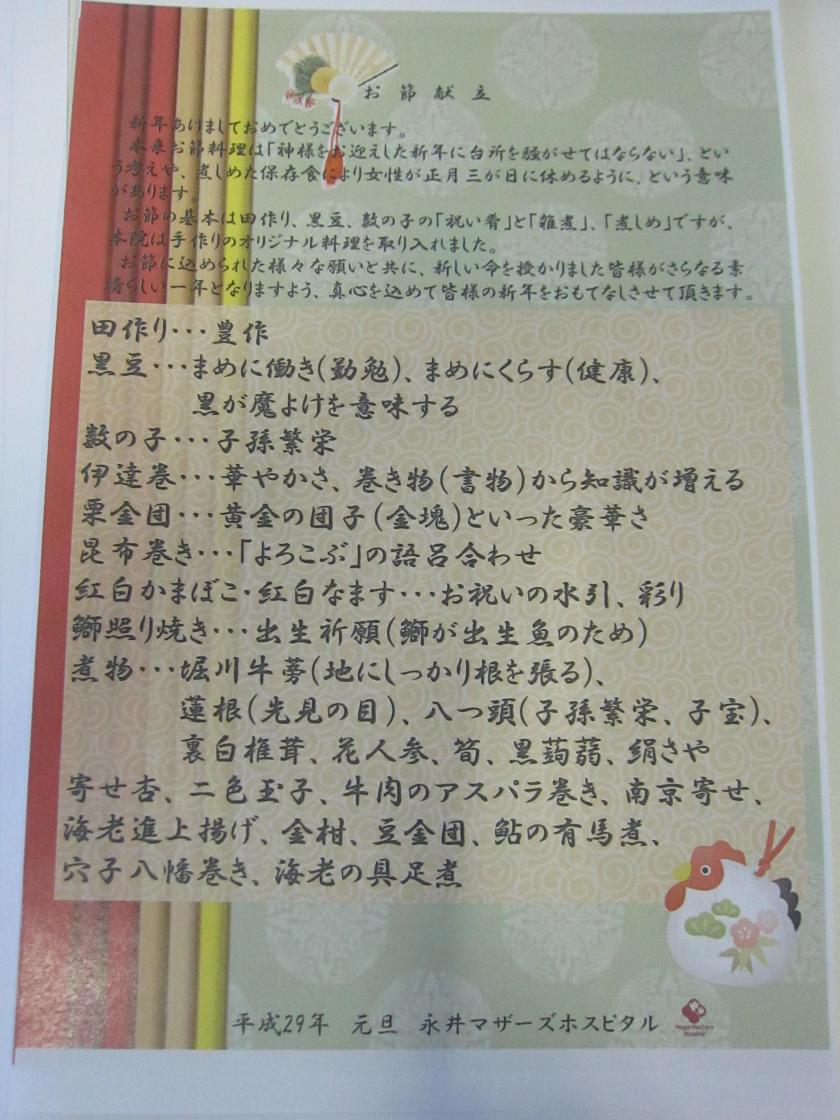 お節献立
新年あけましておめでとうございます。
本来お節料理は「神様をお迎えした新年に台所を騒がせてはならない」、とい
う考えや、煮しめた保存食により女性が正月三が日に休めるように、という意味
があります。
お節の基本は田作り、黒豆、数の子の「祝い肴」と「雑煮」、「煮しめ」ですが、
本院は手作りのオリジナル料理を取り入れました。
お節に込められた様々な願いと共に、新しい命を授かりました皆様がさらなる素
晴らしい一年となりますよう、真心を込めて皆様の新年をおもてなしさせて頂きます。
田作り・・・豊作
黒豆・・・まめに働き(勤勉)、まめにくらす(健康)、
黒が魔よけを意味する
数の子・・・子孫繁栄
伊達巻・・・華やかさ、巻き物(書物)から知識が増える
栗金団・・・黄金の団子(金塊)といった豪華さ
昆布巻き・・・「よろこぶ」の語呂合わせ
紅白かまぼこ・紅白なます・・・お祝いの水引、彩り
鰤照り焼き・・・出生祈願(鰤が出生魚のため)
煮物・・・堀川牛蒡(地にしっかり根を張る)、
蓮根(先見の目)、八つ頭(子孫繁栄、子宝)、
裏白椎茸、花人参、筍、黒蒟蒻、絹さや
寄せ杏、二色玉子、牛肉のアスパラ巻き、南京寄せ、
海老進上揚げ、金柑、豆金団、鮎の有馬煮、
穴子八幡巻き、海老の具足煮
平成29年 元旦 永井マザーズホスピタル
Nagai Mothers
Hospital